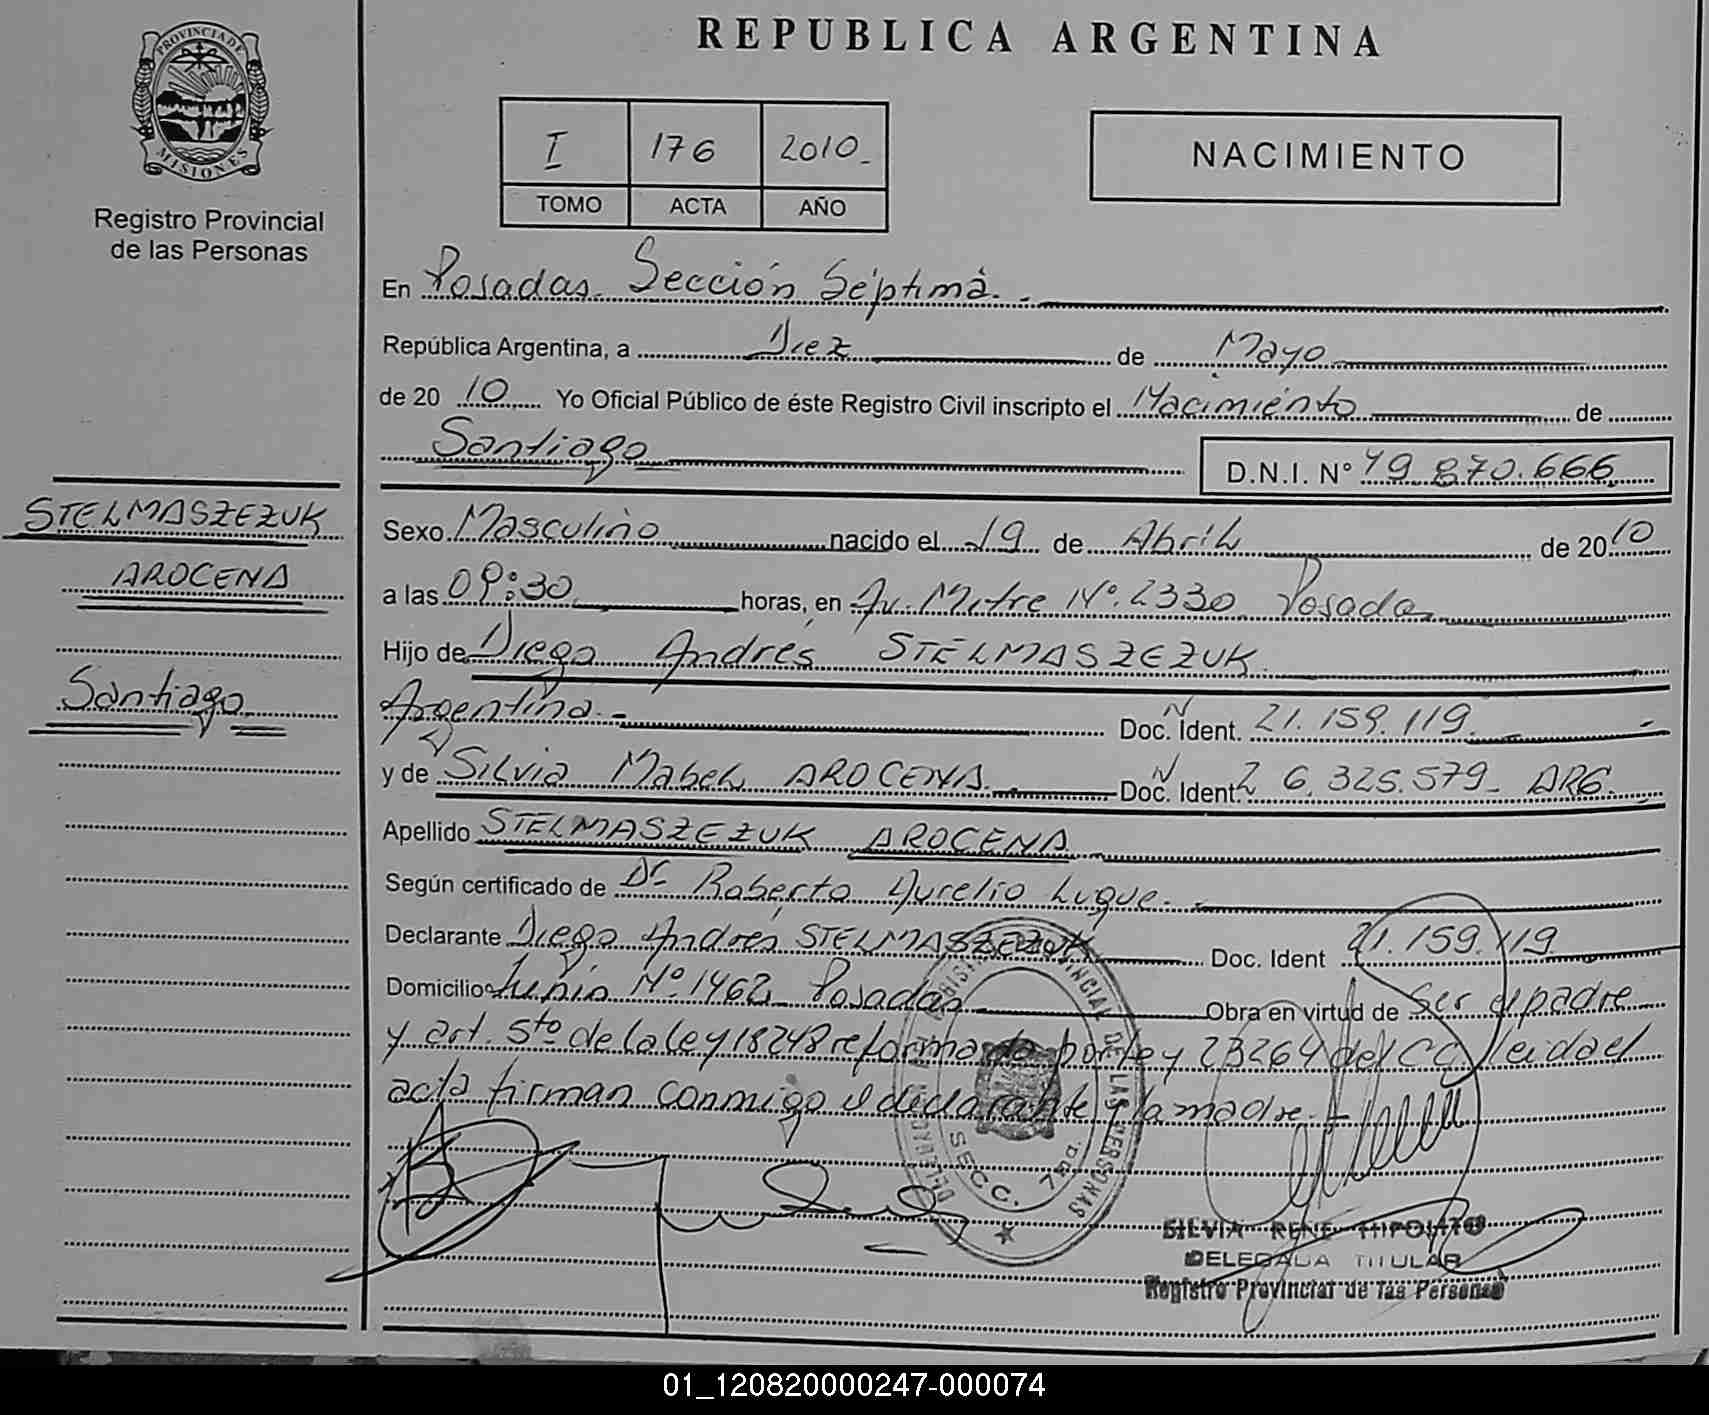 REPUBLICA ARGENTINA
PROVINCIA DE
MISIONES
Registro Provincial
de las Personas
I 176 2010
TOMO ACTA AÑO
NACIMIENTO
En Posadas. Sección Séptima.
República Argentina, a Diez de Mayo
de 20 10 Yo Oficial Público de éste Registro Civil inscripto el Nacimiento de
Santiago D.N.I. N° 49.870.666
STELMASZEZUK
AROCENA
Santiago
Sexo Masculino nacido el 19 de Abril de 20 10
a las 09:30 horas, en Av. Mitre N°. 2330 Posadas
Hijo de Diego Andrés STELMASZEZUK
Argentina. Doc. N Ident. 21.159.119
y de Silvia Mabel AROCENA Doc. N Ident. 26.325.579 ARG.
Apellido STELMASZEZUK AROCENA
Según certificado de Dr. Roberto Aurelio Luque.
Declarante Diego Andrés STELMASZEZUK Doc. Ident 21.159.119
Domicilio Junín N°. 1462 Posadas Obra en virtud de Ser el padre
y art. 5to de la ley 18248 reformada por ley 23264 del CC, leida el
acta firman conmigo el declarante y la madre.
REGISTRO PROVINCIAL DE LAS PERSONAS
SECC. 7ma.
SILVIA RENE HIPOLITO
DELEGADA TITULAR
Registro Provincial de las Personas
01_120820000247-000074